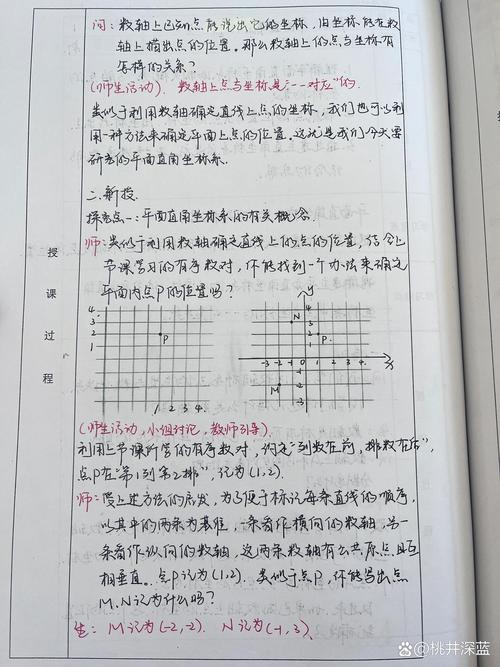 问：数轴上已知点能说出它的坐标，由坐标能在数
轴上描出点的位置。那么数轴上的点与坐标有
怎样的关系？
(师生活动)．数轴上点与坐标是"一一对应"的．
类似于利用数轴确定直线上点的坐标，我们也可以利
用一种方法来确定平面上点的位置．这就是我们今天要
研究的平面直角坐标系．
二．新授．
探究点一：平面直角坐标系的有关概念．
师：类似于利用数轴确定直线上的点的位置，结合上
节课学习的有序数对，你能找到一个办法来确定
平面内点P的位置吗？
授课过程
4
3
2
1
P
1 2 3 4
y
4
3
2
1
N
P
-3 -2 -1 1 2 3 4 x
-1
-2
-3
M
(师生活动，小组讨论，教师引导)．
利用上节课所学的有序数对，约定"列数在前，排数在后"，
点P在"第1列第2排"，记为(1,2)．
师：受上述方法的启发，为了便于标记每条直线的顺序，
以其中的两条为基准，一条看作横向的数轴，另一
条看作纵向的数轴，这两条数轴有公共原点且互
相垂直．点P记为(1,2)．类似于点P，你能写出点
M、N记为什么吗？
生：M记为(-2,-2)．N记为(-1,3)．
百家号/桃井深蓝